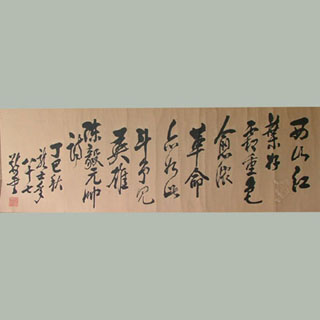 西山红
葉好
霜重色
愈濃
革命
亦如此
斗争见
英雄
陳毅元帅
詩
丁巳秋
八十七